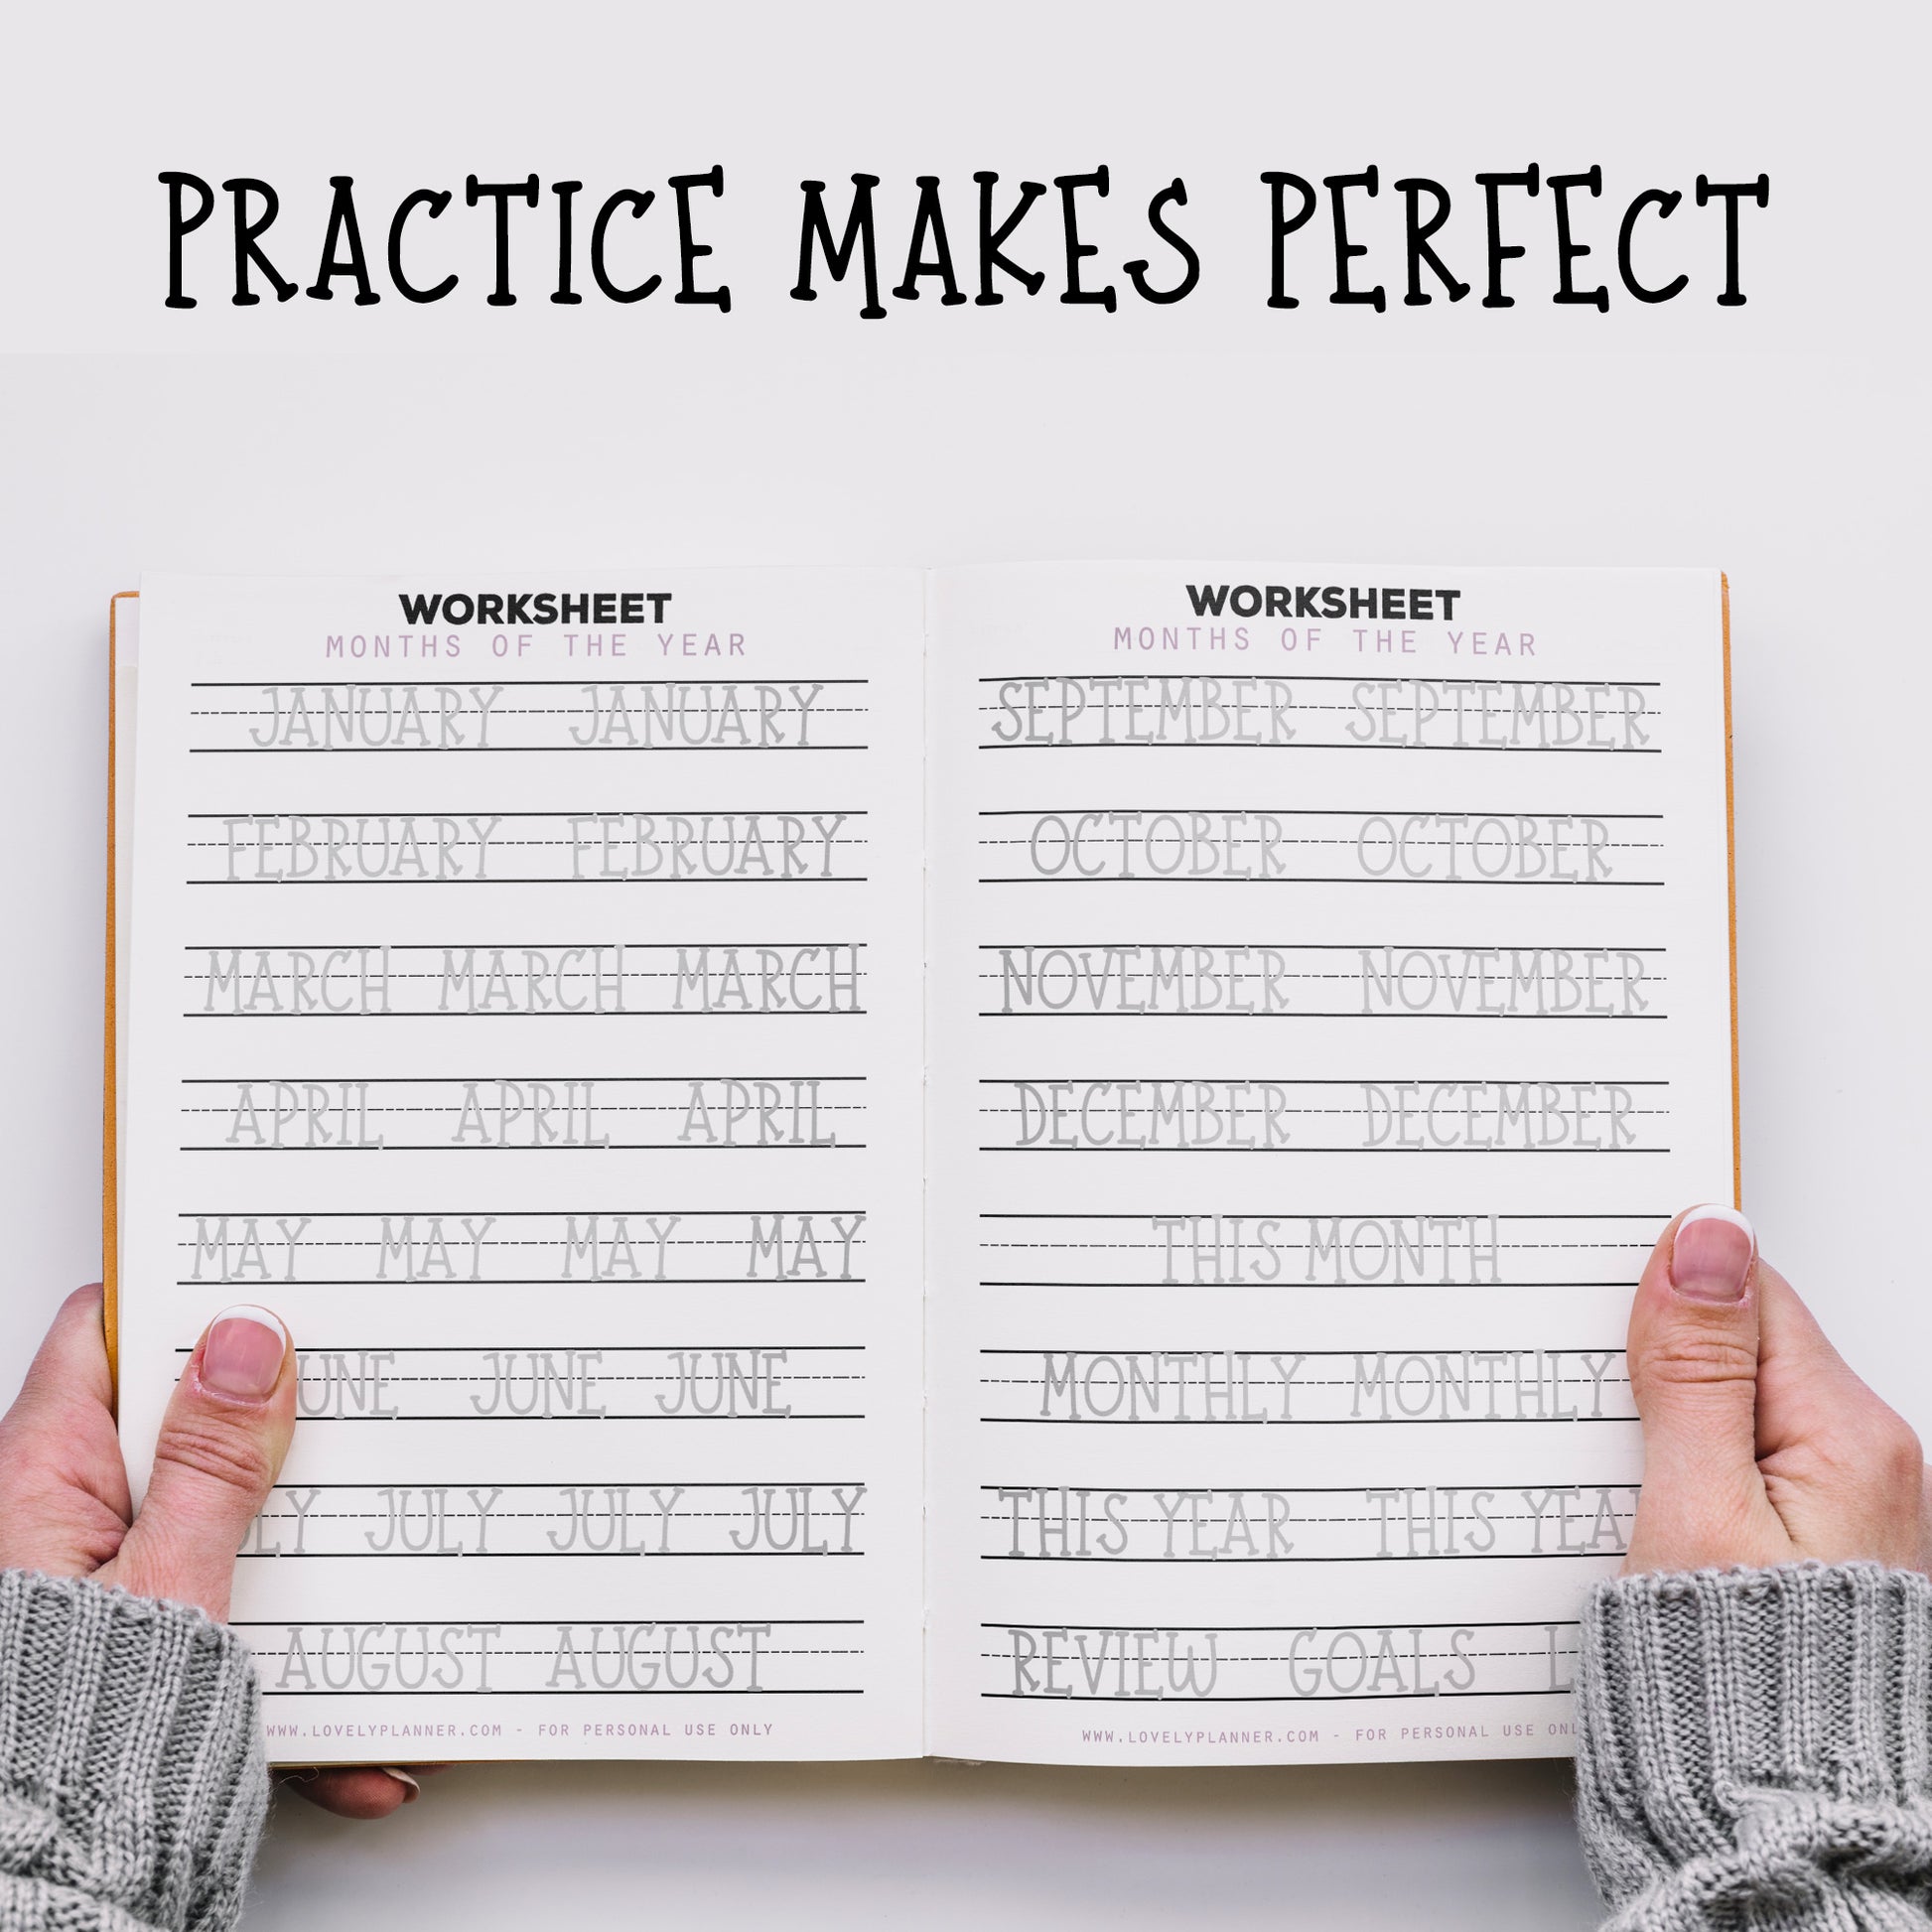 PRACTICE MAKES PERFECT
WORKSHEET
MONTHS OF THE YEAR
JANUARY JANUARY
FEBRUARY FEBRUARY
MARCH MARCH MARCH
APRIL APRIL APRIL
MAY MAY MAY MAY
UNE JUNE JUNE
LY JULY JULY JULY
AUGUST AUGUST
WWW.LOVELYPLANNER.COM - FOR PERSONAL USE ONLY
WORKSHEET
MONTHS OF THE YEAR
SEPTEMBER SEPTEMBER
OCTOBER OCTOBER
NOVEMBER NOVEMBER
DECEMBER DECEMBER
THIS MONTH
MONTHLY MONTHLY
THIS YEAR THIS YEA
REVIEW GOALS
WWW.LOVELYPLANNER.COM - FOR PERSONAL USE ONL